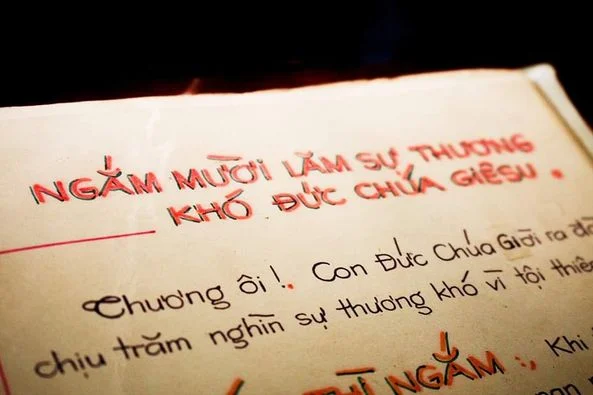 NGẮM MƯỜI LĂM SỰ THƯƠNG
KHÓ ĐỨC CHÚA GIÊSU.
Chương ôi!. Con Đức Chúa Giời ra
chịu trăm nghìn sự thương khó vì tội
THÌ NGẮM:, Khi